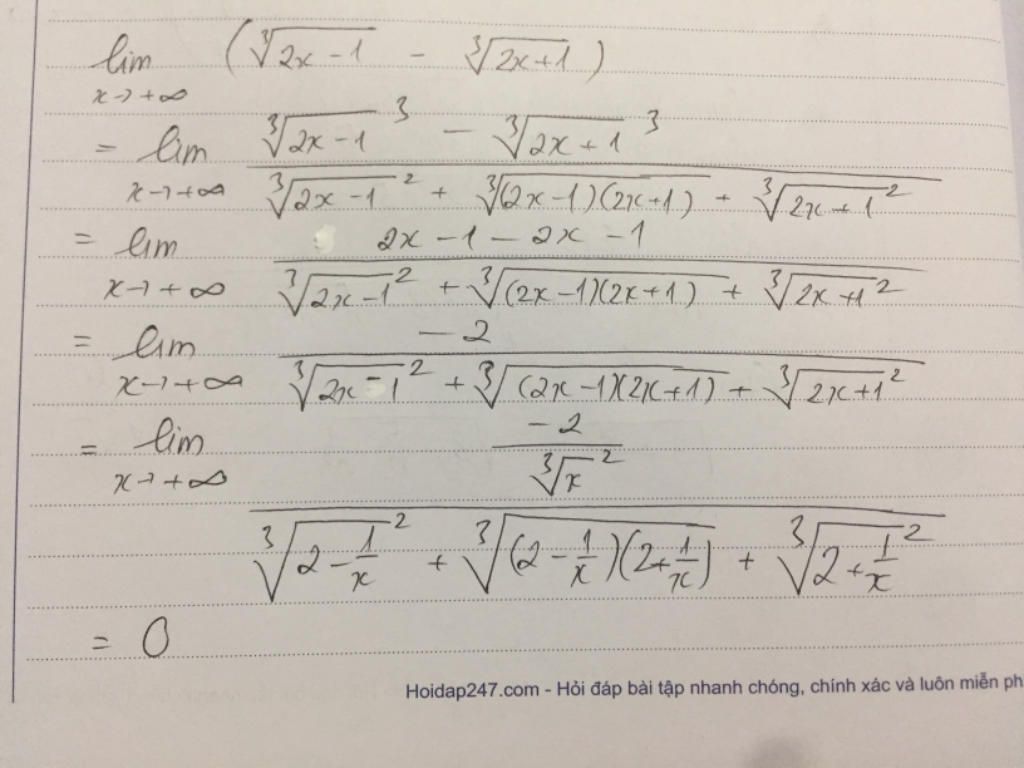 lim (∛(2x-1) - ∛(2x+1))
x→+∞
= lim (∛(2x-1)³ - ∛(2x+1)³) / (∛(2x-1)² + ∛((2x-1)(2x+1)) + ∛(2x+1)²)
x→+∞
= lim (2x-1-2x-1) / (∛(2x-1)² + ∛((2x-1)(2x+1)) + ∛(2x+1)²)
x→+∞
= lim (-2) / (∛(2x-1)² + ∛((2x-1)(2x+1)) + ∛(2x+1)²)
x→+∞
= lim (-2 / ∛x²) / (∛(2-1/x)² + ∛((2-1/x)(2+1/x)) + ∛(2+1/x)²)
x→+∞
= 0
Hoidap247.com - Hỏi đáp bài tập nhanh chóng, chính xác và luôn miễn ph